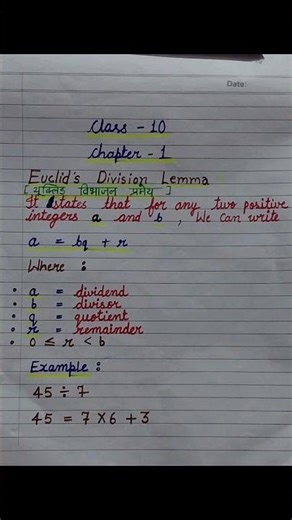 Date:
Class - 10
Chapter - 1
Euclid's Division Lemma
[ यूक्लिड विभाजन प्रमेय ]
It states that for any two positive
integers a and b , We can write
a = bq + r
Where :
• a = dividend
• b = divisor
• q = quotient
• r = remainder
• 0 ≤ r < b
Example :
45 ÷ 7
45 = 7 × 6 + 3